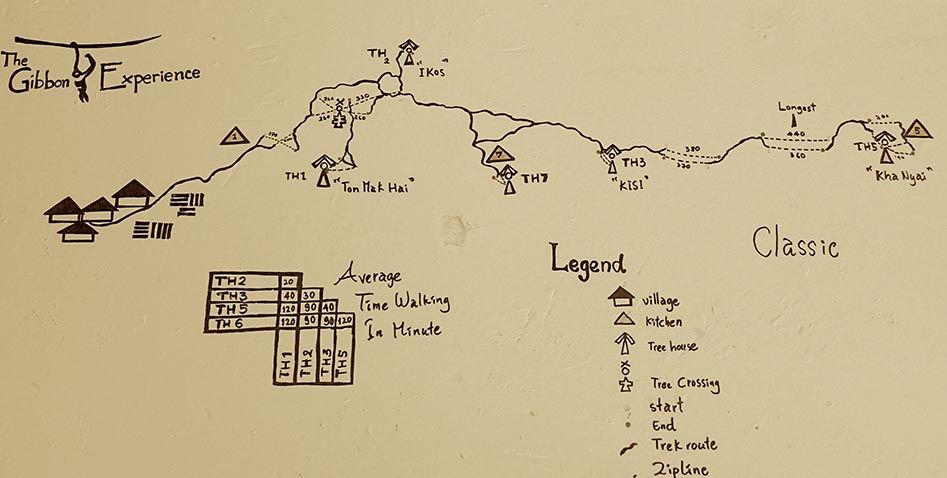 The
Gibbon Experience
TH2
"IKOS"
Longest
1
270
260
330
260
260
440
360
380
320
200
5
TH5
"Kha Nyai"
TH1
"Ton Mak Hai"
7
TH7
TH3
"KISI"
Classic
Average
Time Walking
In Minute
TH2 20
TH3 40 30
TH5 120 90 40
TH6 120 90 90 120
TH1 TH2 TH3 TH5
Legend
village
kitchen
Tree house
Tree Crossing
start
End
Trek route
Zipline